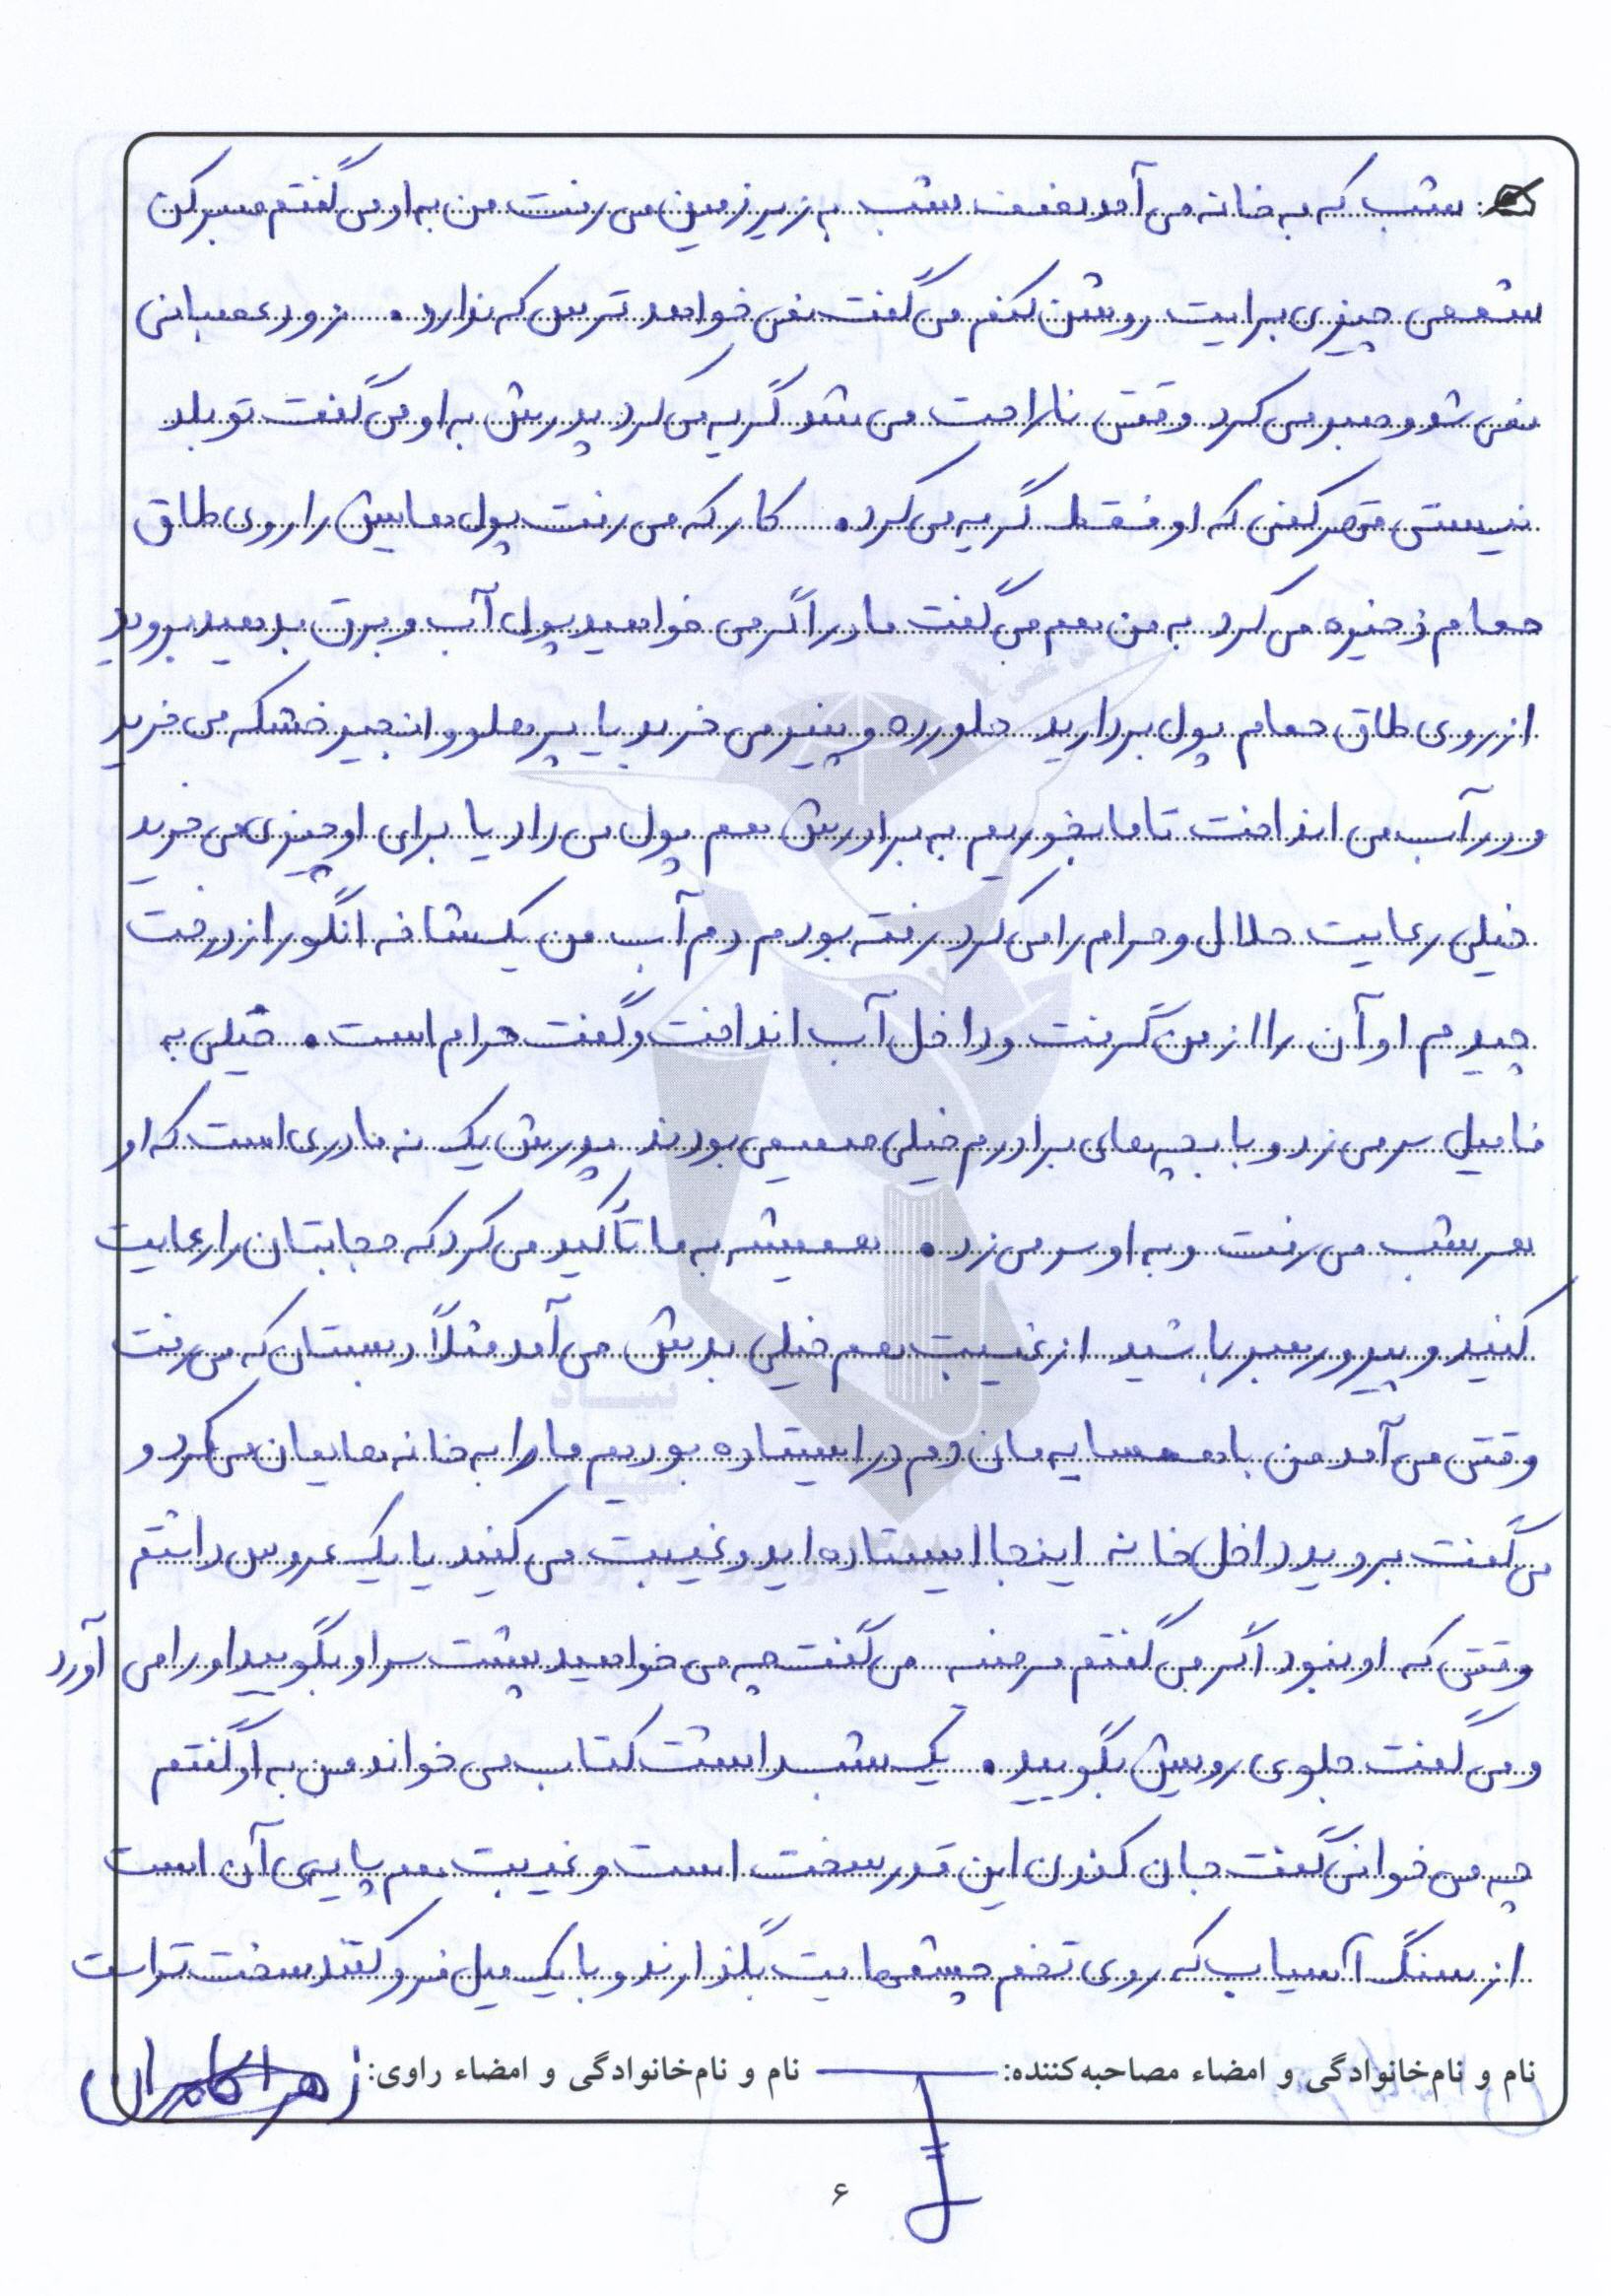 شب که به خانه می آمد نصف شب به زیرزمین می رفت من به او می گفتم صبر کن
شمعی چیزی برایت روشن کنم می گفت نمی خواهد ترس که ندارد. زود عصبانی
نمی شد و صبر می کرد وقتی ناراحت می شد گریه می کرد پدرش به او می گفت تو بلد
نیستی قهر کنی که او فقط گریه می کرد. کار که می رفت پول هایش را روی طاق
حمام ذخیره می کرد به من هم می گفت مادر اگر می خواهید پول آب و برق بدهید بروید
از روی طاق حمام پول بردارید حلورده و پنیر می خرید یا پرهلو و انجیر خشکه می خرید
و در آب می انداخت تا ما بخوریم به برادرش هم پول می داد یا برای او چیزی می خرید
خیلی رعایت حلال و حرام را می کرد رفته بودم دم آب من یک شاخه انگور از درخت
چیدم او آن را از من گرفت و داخل آب انداخت و گفت حرام است. خیلی به
فامیل سر می زد و با بچه های برادرم خیلی صمیمی بودند پدرش یک نه مادری است که او
هر شب می رفت و به او سر می زد. همیشه به ما تأکید می کرد که حجابتان را رعایت
کنید و پیرو رهبر باشید از غیبت هم خیلی بدش می آمد مثلاً دبستان که می رفت
وقتی می آمد من با همسایه مان دم در ایستاده بودیم ما را به خانه هایمان می کرد و
می گفت بروید داخل خانه اینجا ایستاده اید و غیبت می کنید یا یک عروس داشتم
وقتی که او نبود اگر می گفتم مرضیه می گفت چه می خواهید پشت سر او بگویید او را می آورد
و می گفت جلوی رویش بگویید. یک شب داشت کتاب می خواند من به او گفتم
چه می خوانی گفت جان کندن این قدر سخت است و غیبت هم پایین آن است
از سنگ آسیاب که روی تخم چشمهایت بگذارند و با یک میل فرو کنند سخت تر است
نام و نام‌خانوادگی و امضاء مصاحبه‌کننده: نام و نام‌خانوادگی و امضاء راوی: زهرا کامران
۶